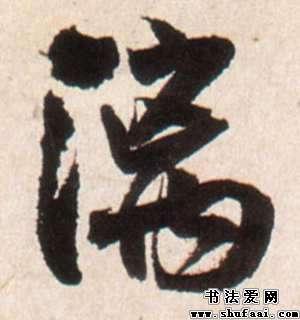 湍
书法爱网
www.shufaai.com